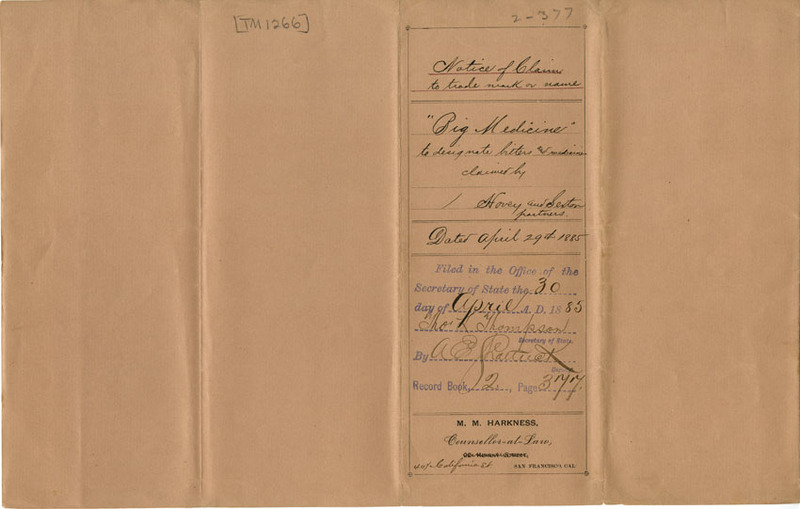 [TM1266]
2-377
Notice of Claim
to trade mark or name
"Big Medicine"
to designate bitters & medicine
claimed by
Hovey and Sexton
partners.
Dated April 29th 1885
Filed in the Office of the
Secretary of State the 30
day of April A. D. 1885
Tho L Thompson
Secretary of State.
By A E
Deputy
Record Book, 2, Page 377
M. M. HARKNESS,
Counsellor-at-Law,
California St. SAN FRANCISCO, CAL